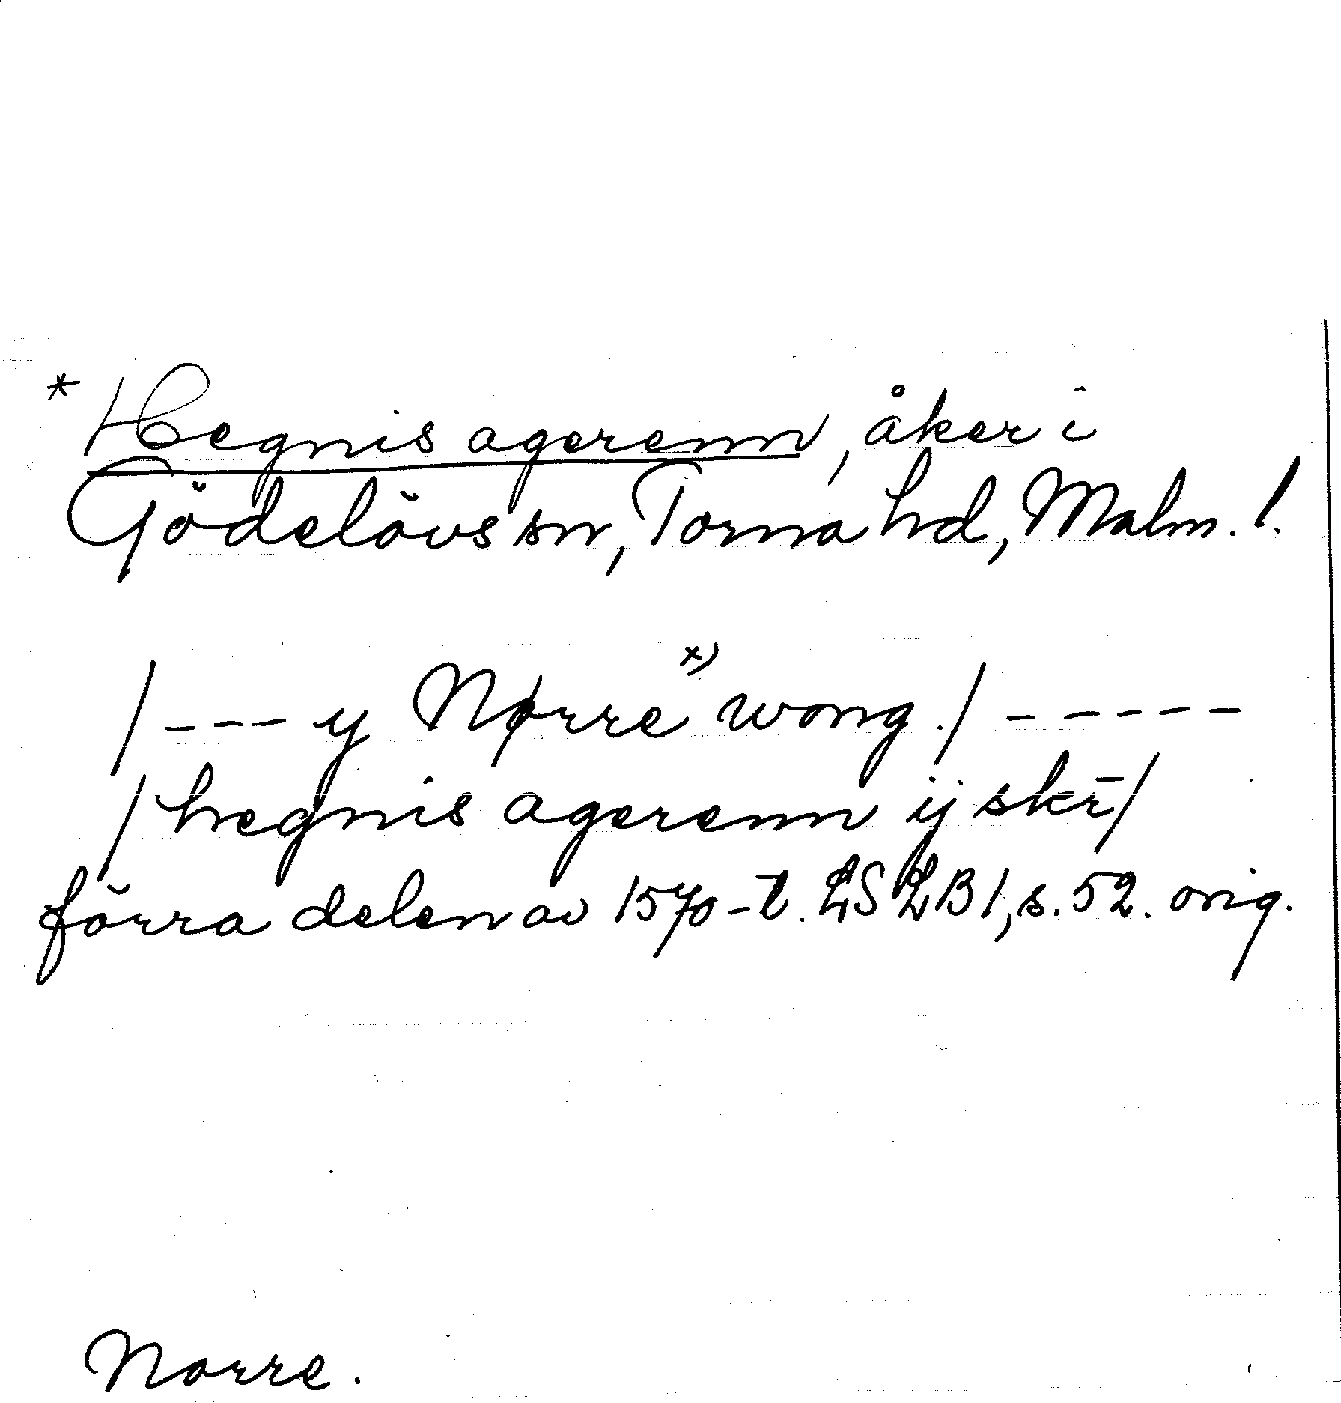 * Hegnis agerenn, åker i
Gödelövs sn, Torna hd, Malm. l.
/--- y Nørre x) wong./ -----
/hegnis agerenn ij skr̄/
förra delen av 1570-t. LSLB 1, s. 52. orig.
Norre.